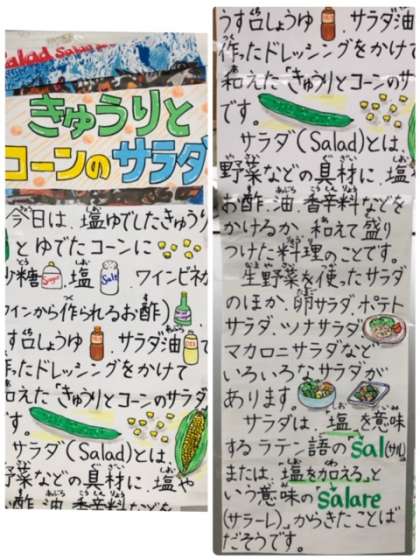 Salad
きゅうりと
コーンのサラダ
今日は、塩ゆでしたきゅうり
とゆでたコーンに
砂糖、塩、ワインビネ
ワインから作られるお酢)
すロしょうゆ、サラダ油
作ったドレッシングをかけて
和えたきゅうりとコーンのサラダ
です。
サラダ(Salad)とは、
野菜などの具材に、塩や
お酢、油、香辛料などを
うすロしょうゆ、サラダ油
作ったドレッシングをかけ
和えたきゅうりとコーンのサ
です。
サラダ(Salad)とは、
野菜などの具材に、塩
お酢、油、香辛料などを
かけるか、和えて盛り
つけた料理のことです。
生野菜を使ったサラダ
のほか、卵サラダ、ポテト
サラダ、ツナサラダ
マカロニサラダなど
いろいろなサラダが
あります。
サラダは、塩を意味
するラテン語のsal(サル)
または、塩を加えると
いう意味のsalare
(サラーレ)、からきたことば
だそうです。